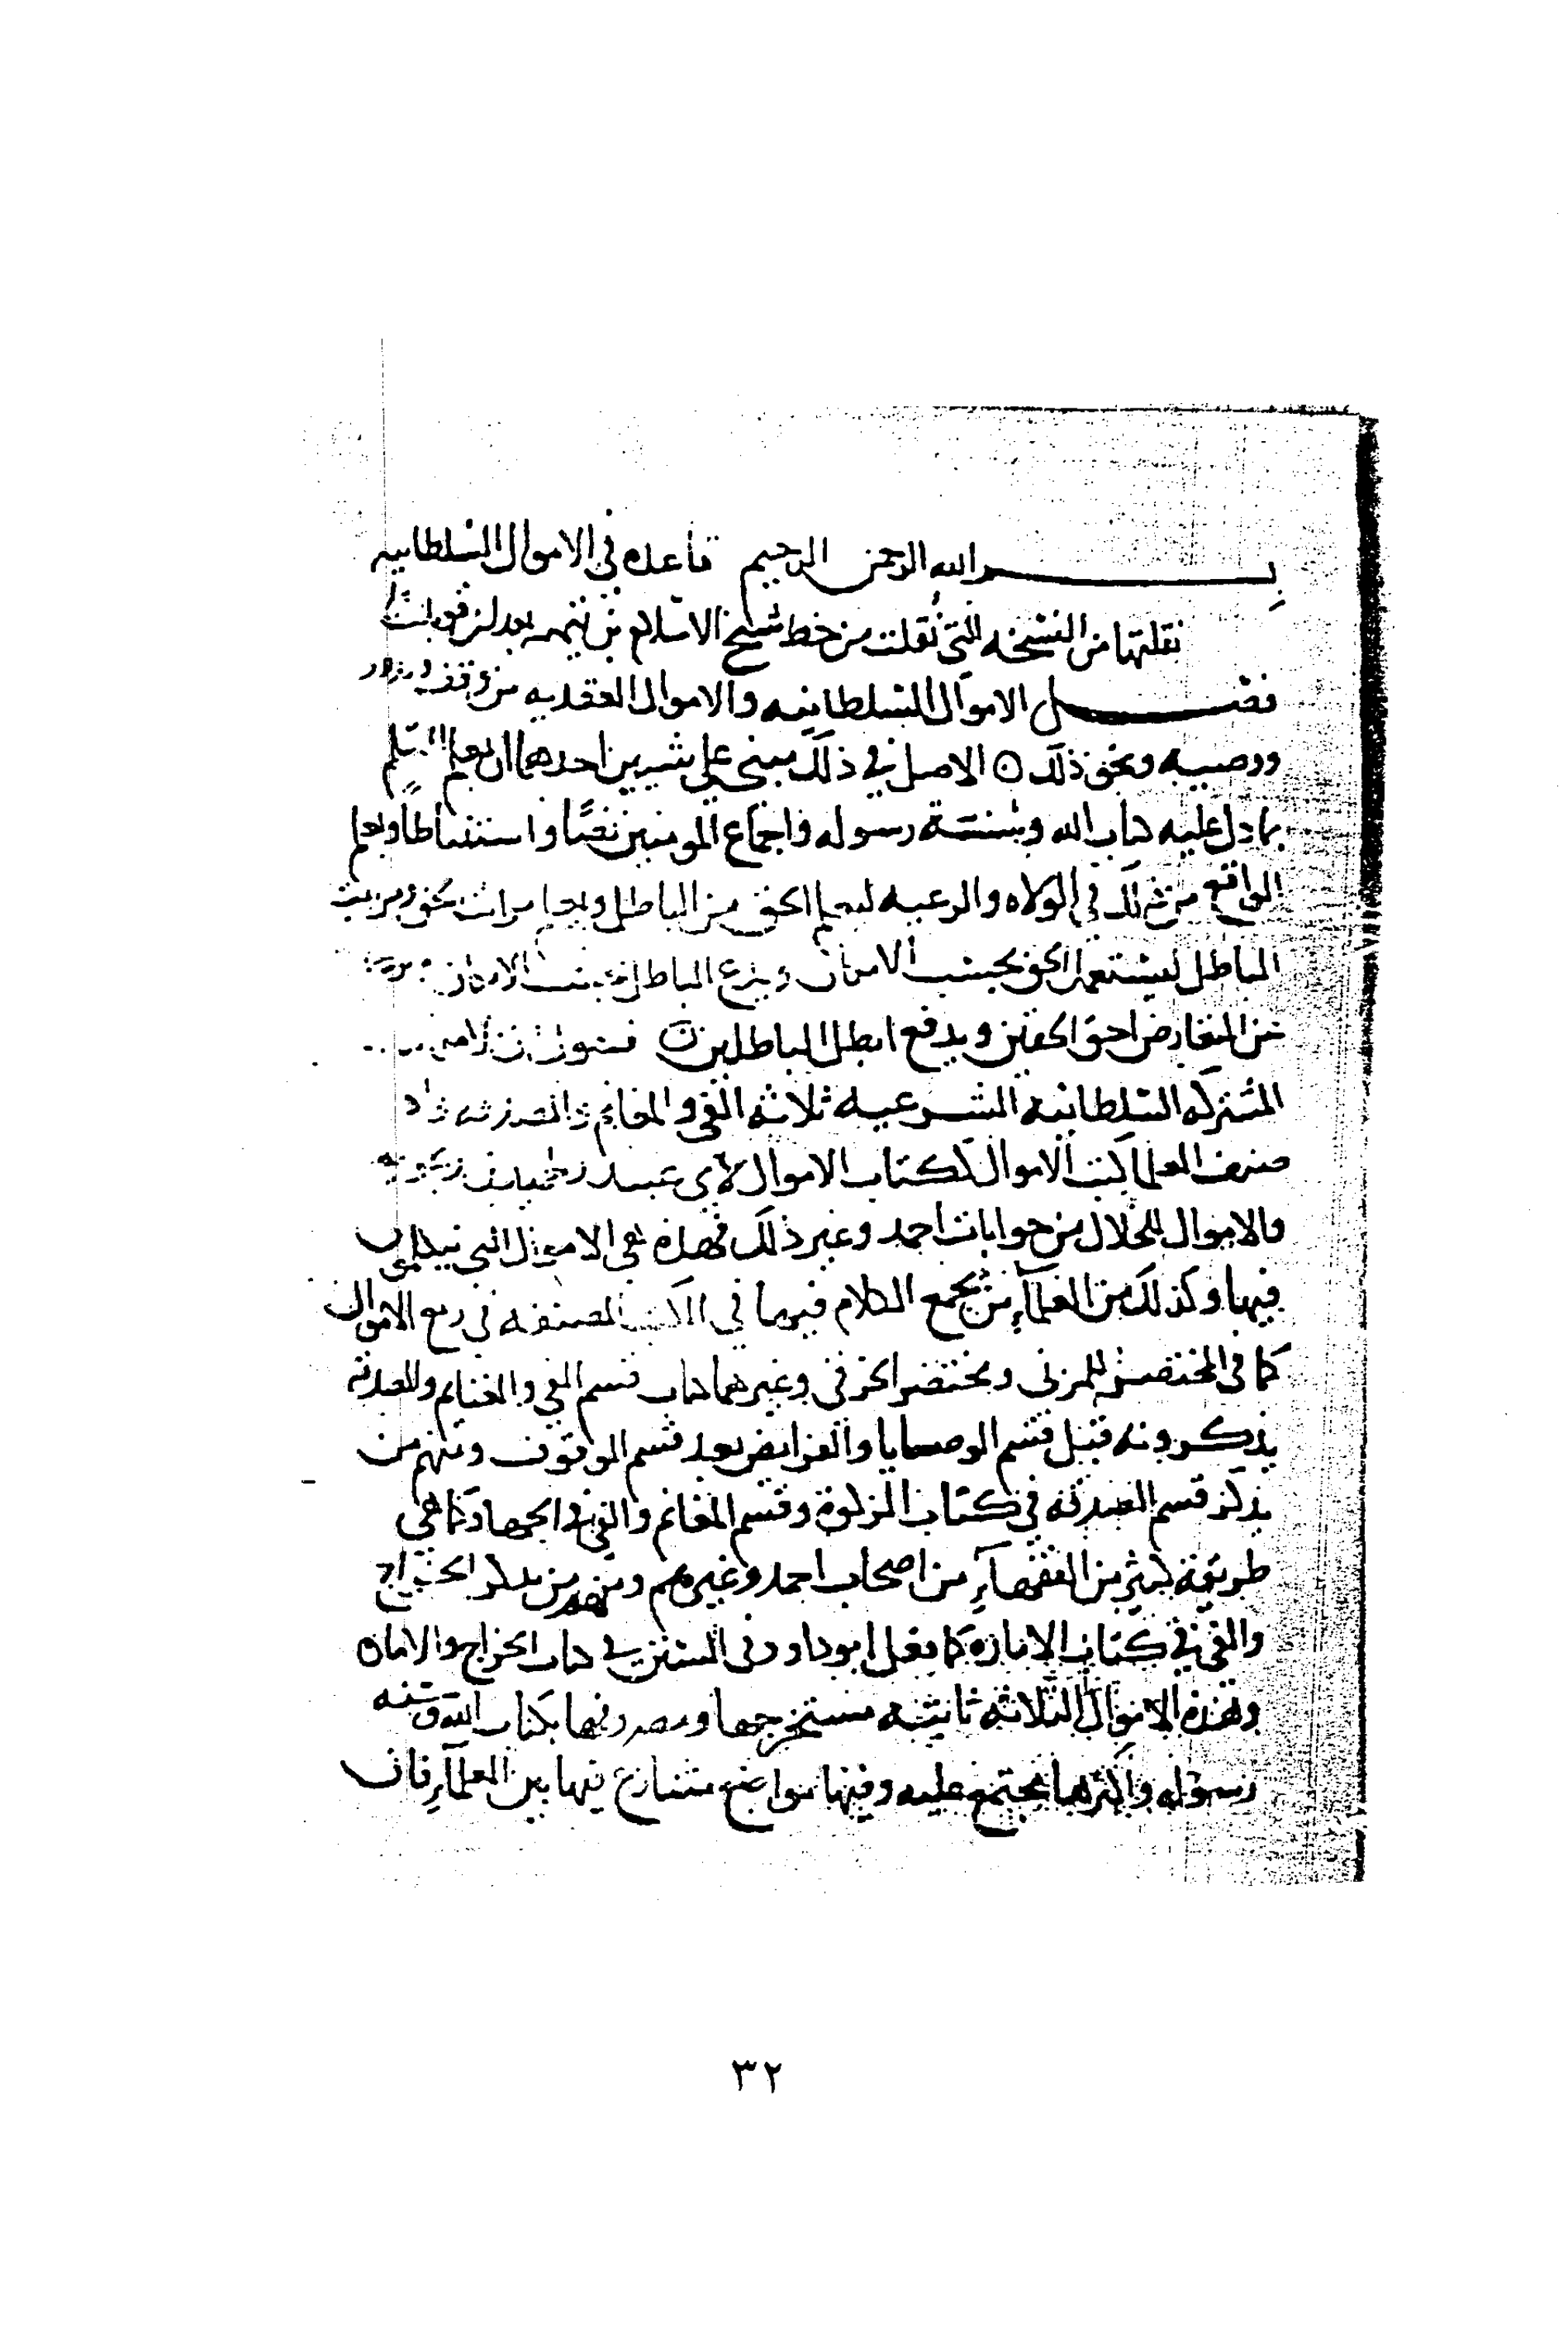 بسم الله الرحمن الرحيم قاعده في الاموال السلطانيه
نقلتها من النسخه التي نقلت من خط شيخ الاسلام بن تيميه بعد ان قوبلت
فصل الاموال السلطانيه والاموال العقديه من وقف ونذر
ووصيه ونحو ذلك ٥ الاصل في ذلك مبني على شيين احدهما ان يعلم المسلم
بما دل عليه كتاب الله وسنة رسوله واجماع المومنين نصًا واستنباطا ويعلم
الواقع من ذلك في الولاه والرعيه ليعلم الحق من الباطل ويعلم مراتب الحق ومراتب
الباطل ليستعمل الحق بحسب الامكان ويدع الباطل بحسب الامكان
عن التعارض احق الحقين ويدفع ابطل الباطلين ٥ فنقول ان الاموال
المشتركه السلطانيه الشرعيه ثلاثه الفي والمغانم والصدقه
صنف العلما كتب الاموال ككتاب الاموال لابي عبيد
والاموال للخلال من جوابات احمد وغير ذلك فهذه هي الاموال التي يتكلمون
فيها وكذلك من العلمآء من يجمع الكلام فيها في الكتب المصنفه في ربع الاموال
كما في المختصر للمزني ومختصر الخرقي وغيرهما كتاب قسم الفي والغنايم والصدقه
يذكرونه قبل قسم الوصايا والفرايض بعد قسم الوقوف ومنهم من
يذكر قسم الصدقه في كتاب الزكوة وقسم المغانم والفي في الجهاد كما هي
طريقة كثير من الفقهآء من اصحاب احمد وغيرهم ومنهم من يذكر الخراج
والفي في كتاب الاماره كما فعل ابو داود في السنن في كتاب الخراج والاماره
وهذه الاموال الثلاثه ثابتة مستخرجها ومصروفها بكتاب الله وسنه
رسوله واكثرها مجتمع عليه وفيها مواضع متنازع فيها بين العلمآء فان
٣٢